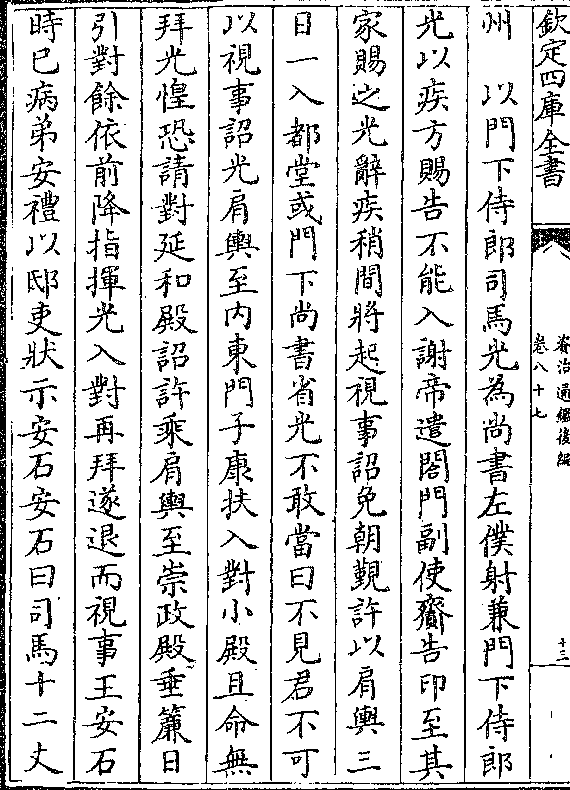 欽定四庫全書
資治通鑑後編
卷八十七
十三
州　以門下侍郎司馬光為尚書左僕射兼門下侍郎
光以疾方賜告不能入謝帝遣閤門副使齎告印至其
家賜之光辭疾稍間將起視事詔免朝覲許以肩輿三
日一入都堂或門下尚書省光不敢當曰不見君不可
以視事詔光肩輿至内東門子康扶入對小殿且命無
拜光惶恐請對延和殿詔許乘肩輿至崇政殿垂簾日
引對餘依前降指揮光入對再拜遂退而視事王安石
時已病弟安禮以邸吏狀示安石安石曰司馬十二丈